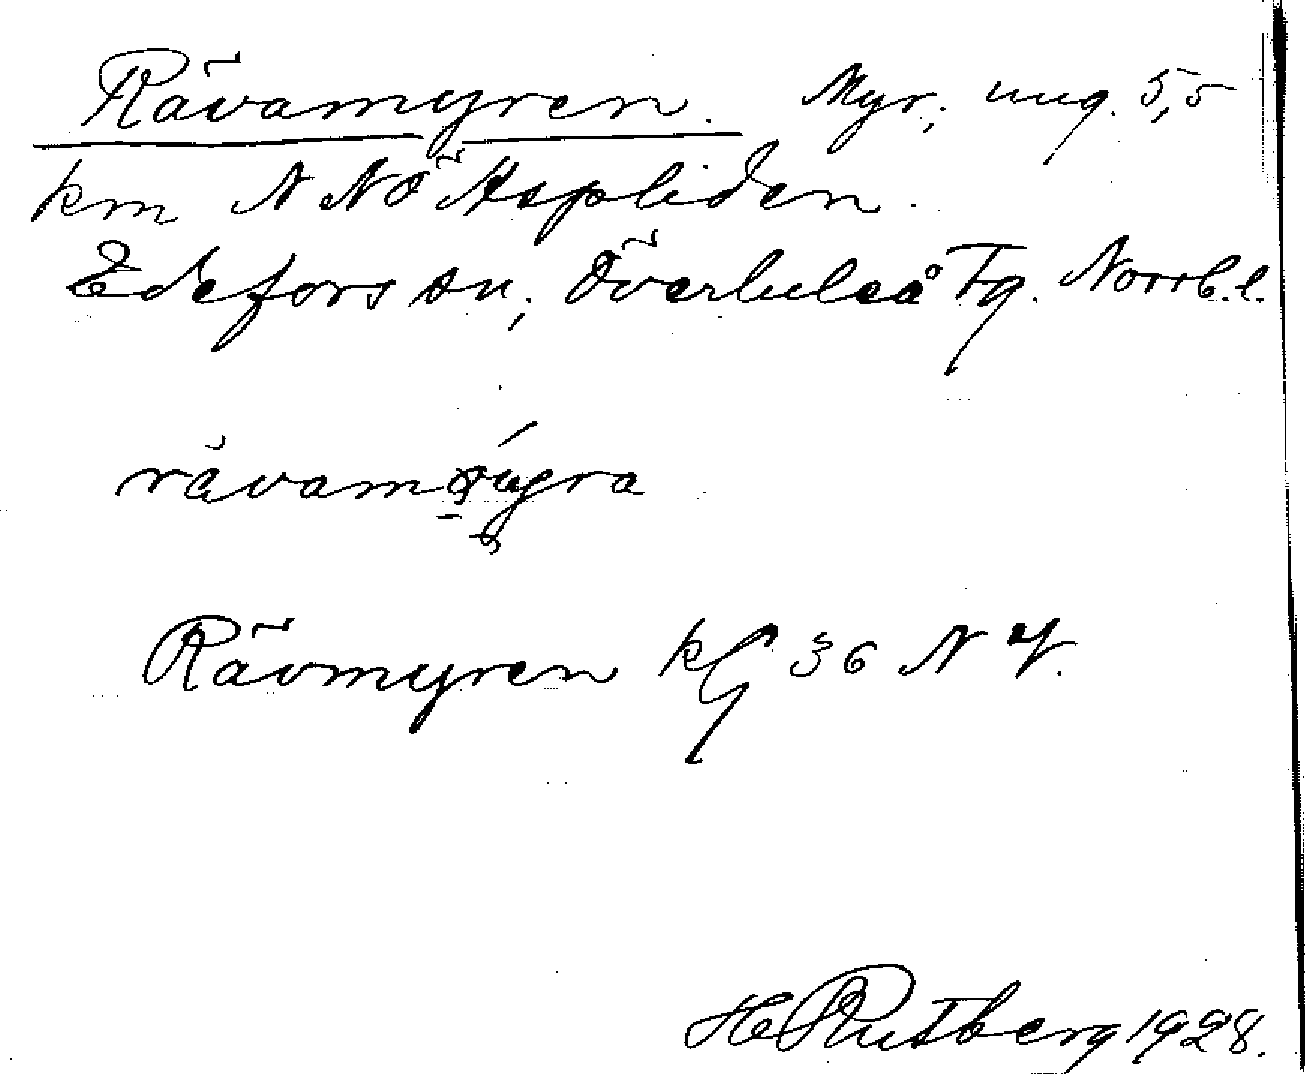 Rävamyren. Myr, ung. 5,5
km N NÖ Aspliden.
Edefors sn, Överluleå Tg. Norrb.l.
rävam
Rävmyren kfg 36 N V.
H Rutberg 1928.